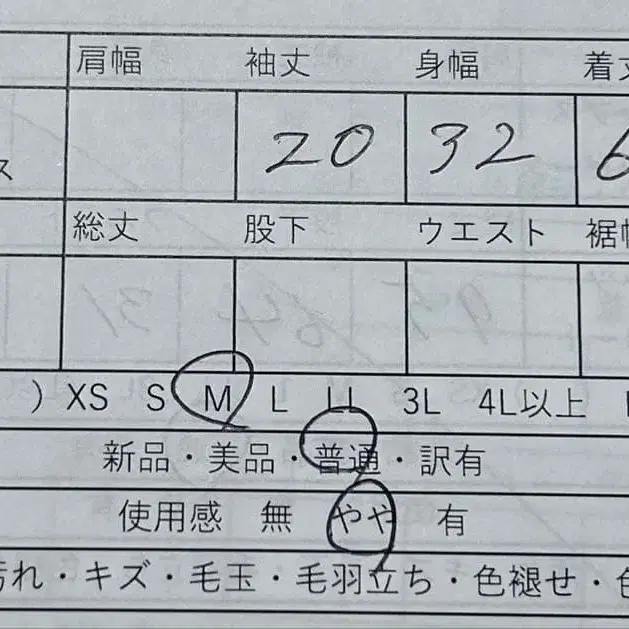 肩幅 袖丈 身幅 着丈
ス 20 32 6
総丈 股下 ウエスト 裾幅
) XS S M L LL 3L 4L以上
新品・美品・普通・訳有
使用感 無 やや 有
汚れ・キズ・毛玉・毛羽立ち・色褪せ・色